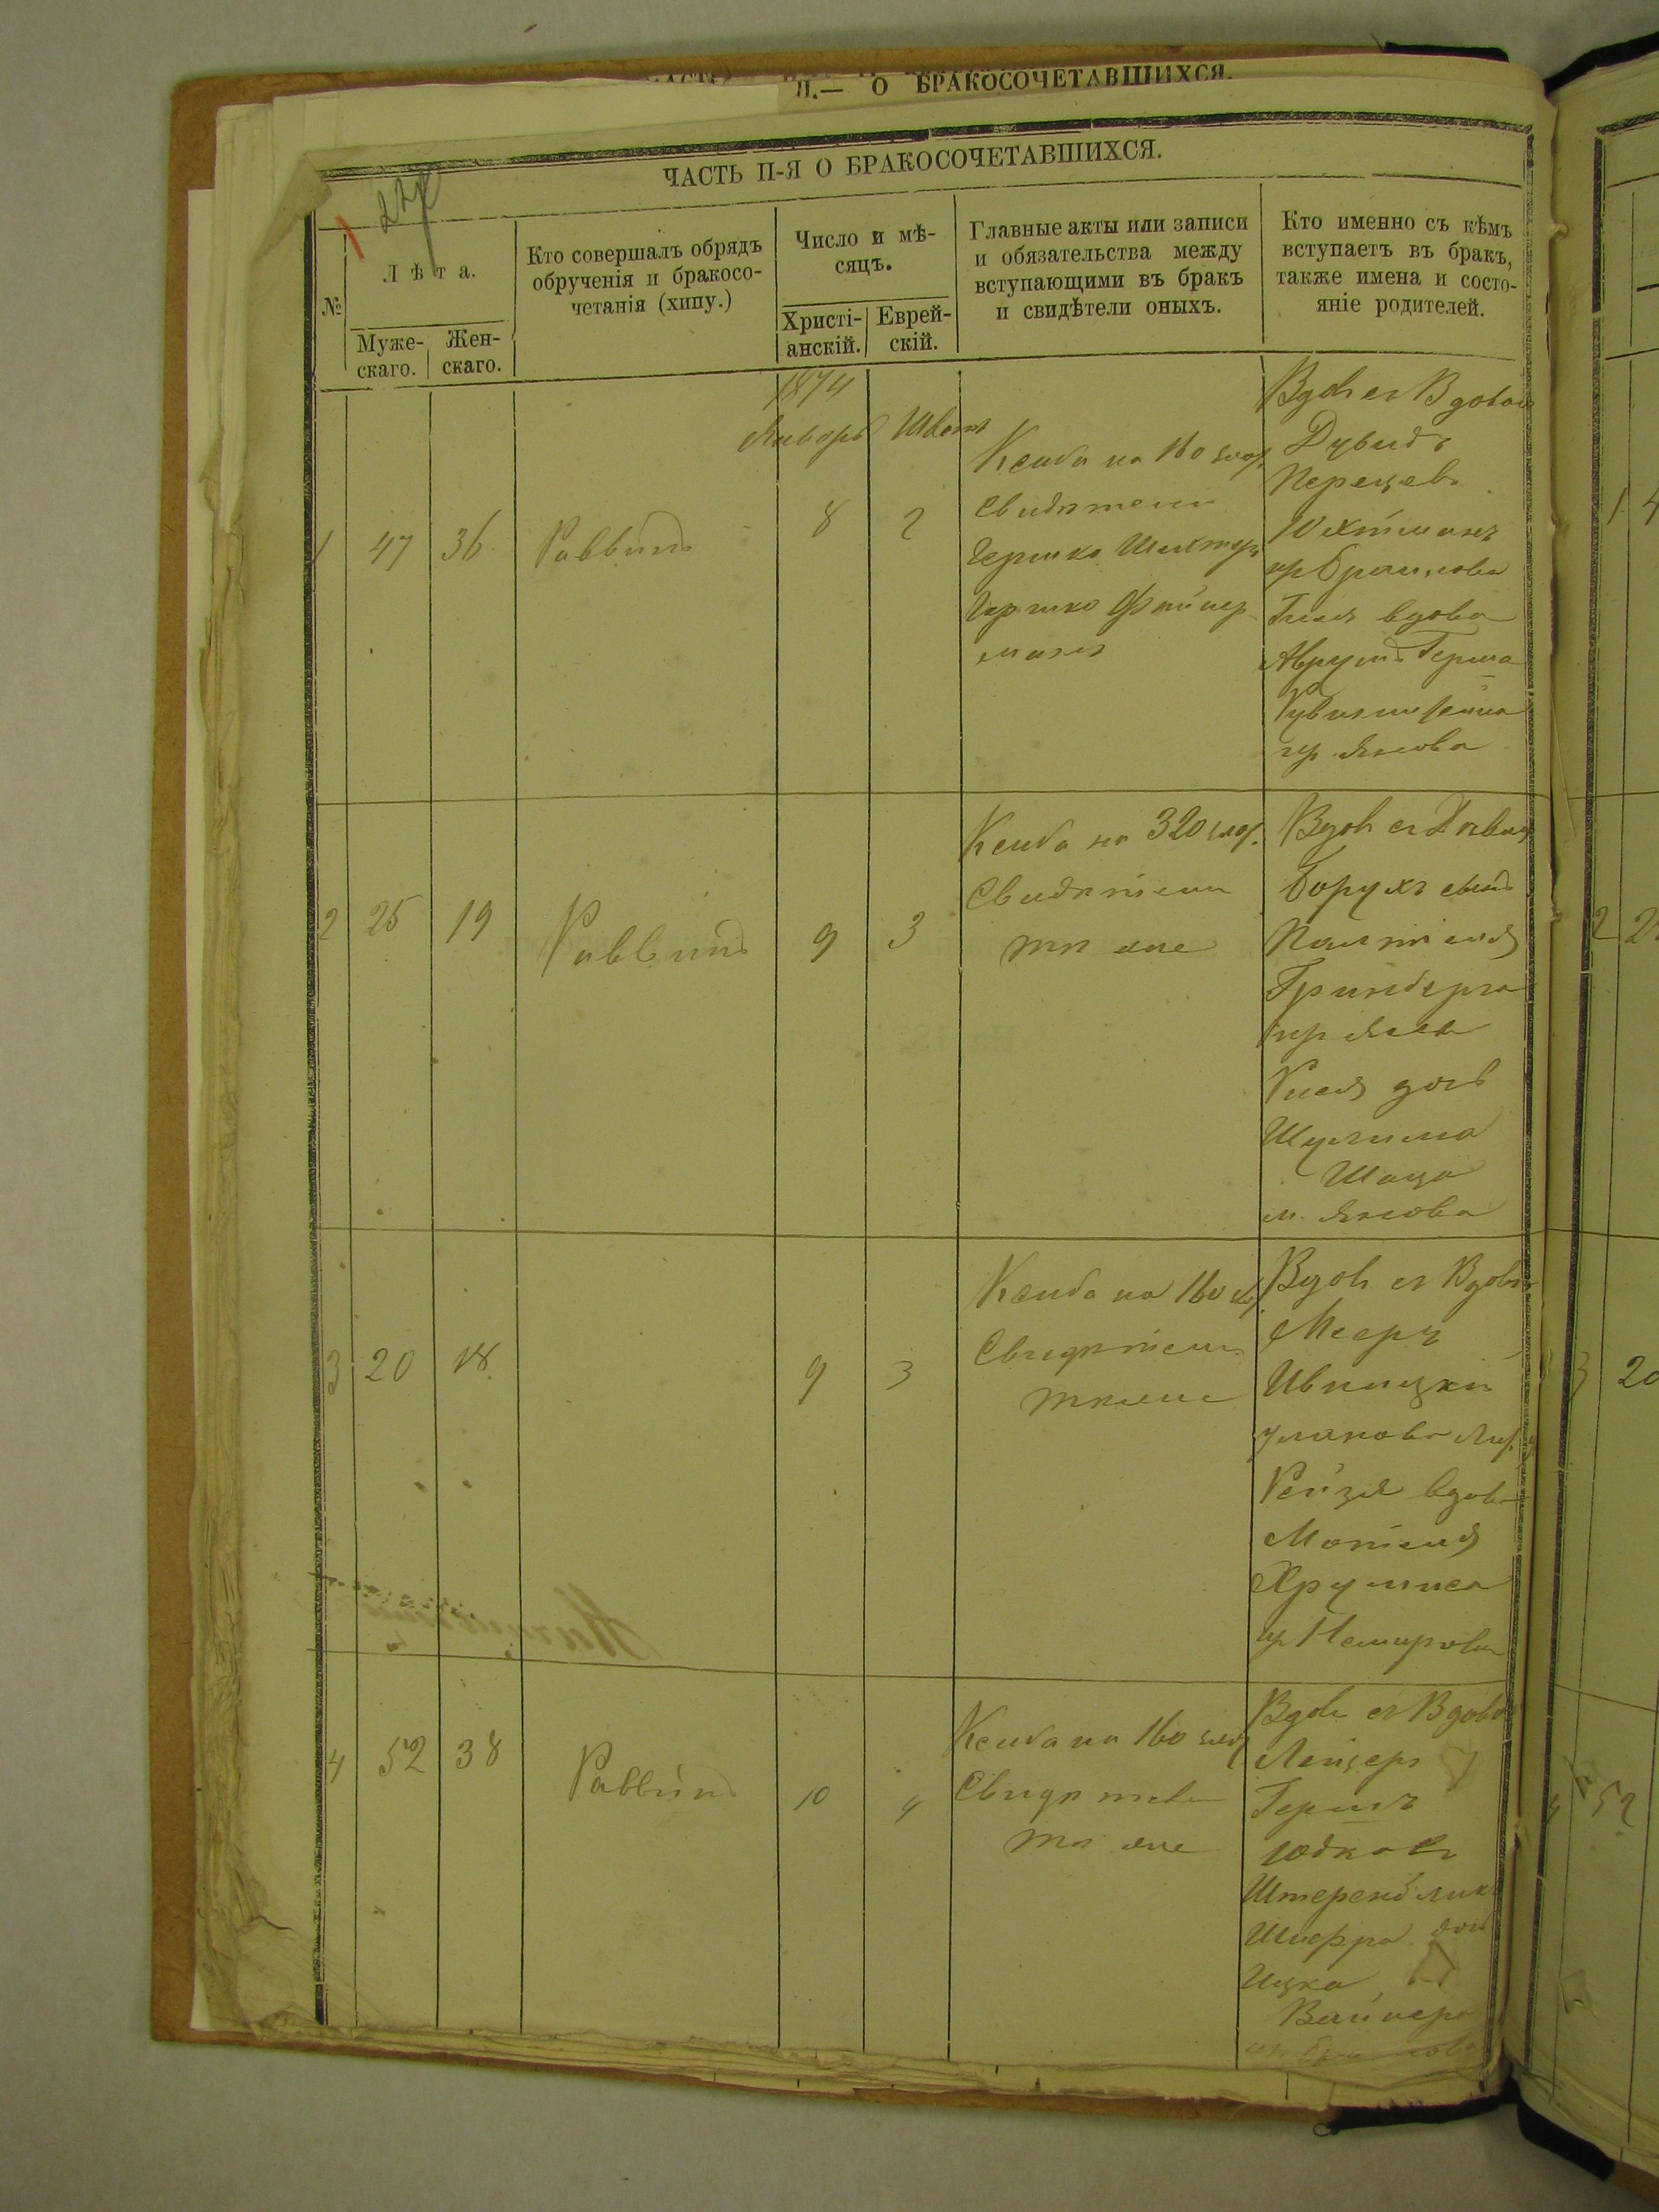 II.— О БРАКОСОЧЕТАВШИХСЯ.
ЧАСТЬ II-Я О БРАКОСОЧЕТАВШИХСЯ.
№
Лѣта.
Муже-
скаго.
Жен-
скаго.
Кто совершалъ обрядъ
обрученія и бракосо-
четанія (хипу.)
Число и мѣ-
сяцъ.
Христі-
анскій.
Еврей-
скій.
Главные акты или записи
и обязательства между
вступающими въ бракъ
и свидѣтели оныхъ.
Кто именно съ кѣмъ
вступаетъ въ бракъ,
также имена и состо-
яніе родителей.
1874
Январь Шват
1 47 36 Раввинъ 8 2
Ксиба на 160 злот.
Свидѣтели
Гершко Шихтеръ
Гершко Файнер
манъ
Вдов съ Вдовою
Дувидъ
Перецевъ
Юхтманъ
из Браилова
вдова
Аврумъ Герша
гр Янова
2 25 19 Раввинъ 9 3
Ксиба на 320 злот.
Свидѣтели
тѣ же
Вдов съ Дѣвиц
Борухъ сынъ
Гринберга
Янова
дочь
Шулима
Шаца
м. Янова
3 20 18 9 3
Ксиба на 160 зл.
Свидѣтели
тѣ же
Вдов съ Вдовою
Мееръ
Ивницкій
Рейзя вдова
Мотеля
из Немирова
4 52 38 Раввинъ 10 4
Ксиба на 160 злот
Свидѣтели
тѣ же
Вдов съ Вдовою
Лейзеръ
Гершъ
Юдковъ
Шифра дочь
Ицка
Вайнера